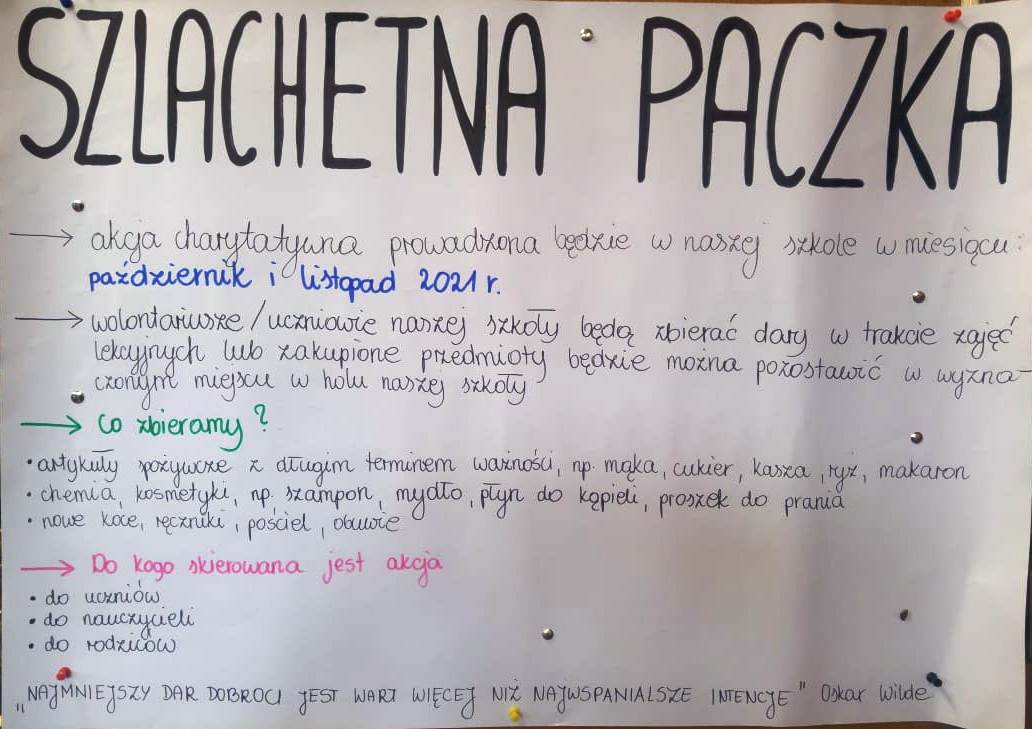 SZLACHETNA PACZKA
→ akcja charytatywna prowadzona będzie w naszej szkole w miesiącu:
październik i listopad 2021 r.
→ wolontariusze/uczniowie naszej szkoły będą zbierać dary w trakcie zajęć
lekcyjnych lub zakupione przedmioty będzie można pozostawić w wyzna-
czonym miejscu w holu naszej szkoły
→ Co zbieramy?
• artykuły spożywcze z długim terminem ważności, np. mąka, cukier, kasza, ryż, makaron
• chemia, kosmetyki, np. szampon, mydło, płyn do kąpieli, proszek do prania
• nowe koce, ręczniki, pościel, obuwie
→ Do kogo skierowana jest akcja
• do uczniów
• do nauczycieli
• do rodziców
„NAJMNIEJSZY DAR DOBROCI JEST WART WIĘCEJ NIŻ NAJWSPANIALSZE INTENCJE" Oskar Wilde